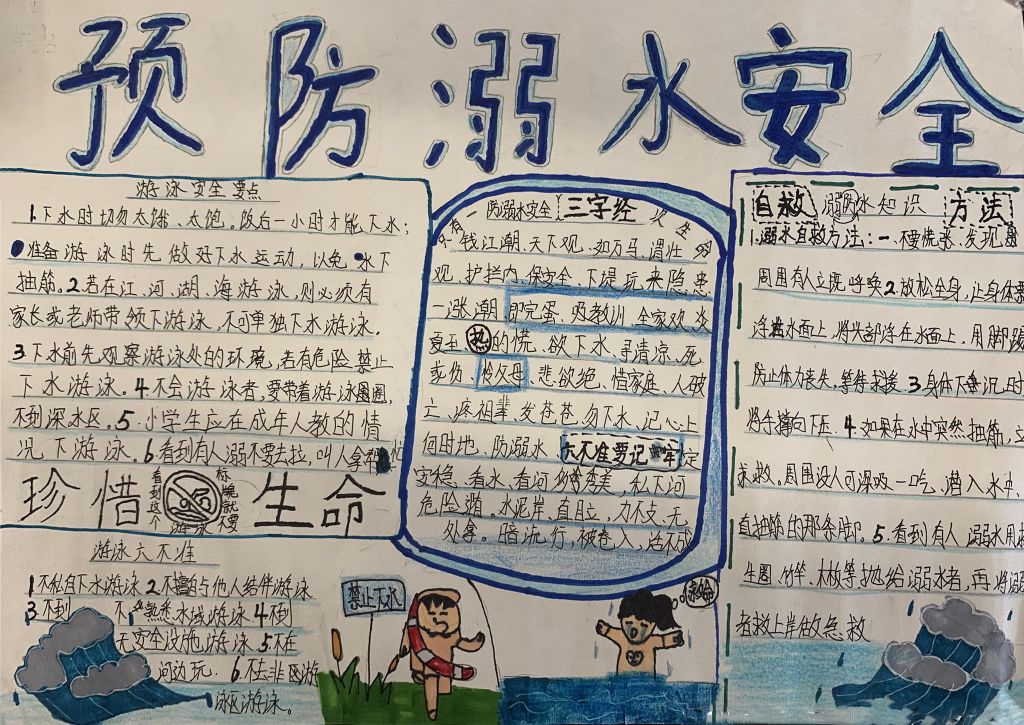 预防溺水安全
游泳安全要点
1.下水时切勿太饿、太饱。饭后一小时才能下水;
准备游泳时先做好下水运动,以免水下
抽筋。2.若在江、河、湖、海游泳,则必须有
家长或老师带领下游泳,不可单独下水游泳。
3.下水前先观察游泳处的环境,若有危险禁止
下水游泳。4.不会游泳者,要带着游泳圈,
不到深水区。5.小学生应在成年人教的情
况下游泳。6.看到有人溺不要去拉,叫人拿
珍惜
看到这个
标
就不要
游泳
生命
游泳六不准
1不私自下水游泳2不擅自与他人结伴游泳
3不到 不熟悉水域游泳4不到
无安全设施游泳5不在
河边玩.6.不去非游
泳区游泳。
只有一次生命
防溺水安全三字经
钱江潮、天下观、如万马、渭壮
观、护拦内、保安全、下堤玩来隐患
一涨潮、即完蛋、吸教训、全家欢炎
夏丑热的慌、欲下水、寻清凉、死
或伤、怜父母、悲欲绝、惜家庭、人破
亡、疼祖辈、发苍苍、勿下水、记心上
何时地、防溺水、六不准要记牢定
安稳、看水、看河、秀美,私下河
危险殖。水泥岸、直且立,力不支、无
处拿。暗流行,被卷入,活不成
禁止下水
救命
自救溺水知识方法
1.溺水自救方法:一、不要慌张、发现
周围有人立既呼唤2放松全身,让身体
浮在水面上,将头部浮在水面上,用脚踢
防止体力丧失,等待求援3身体下沉时
将手撑向下压.4.如果在水中突然抽筋,立
求救。周围没人可深吸一口气、潜入水中、
直抽筋的那条脚。5.看到有人溺水用
生圈、竹竿、木板等抛给溺水者,再将溺
者救上岸做急救